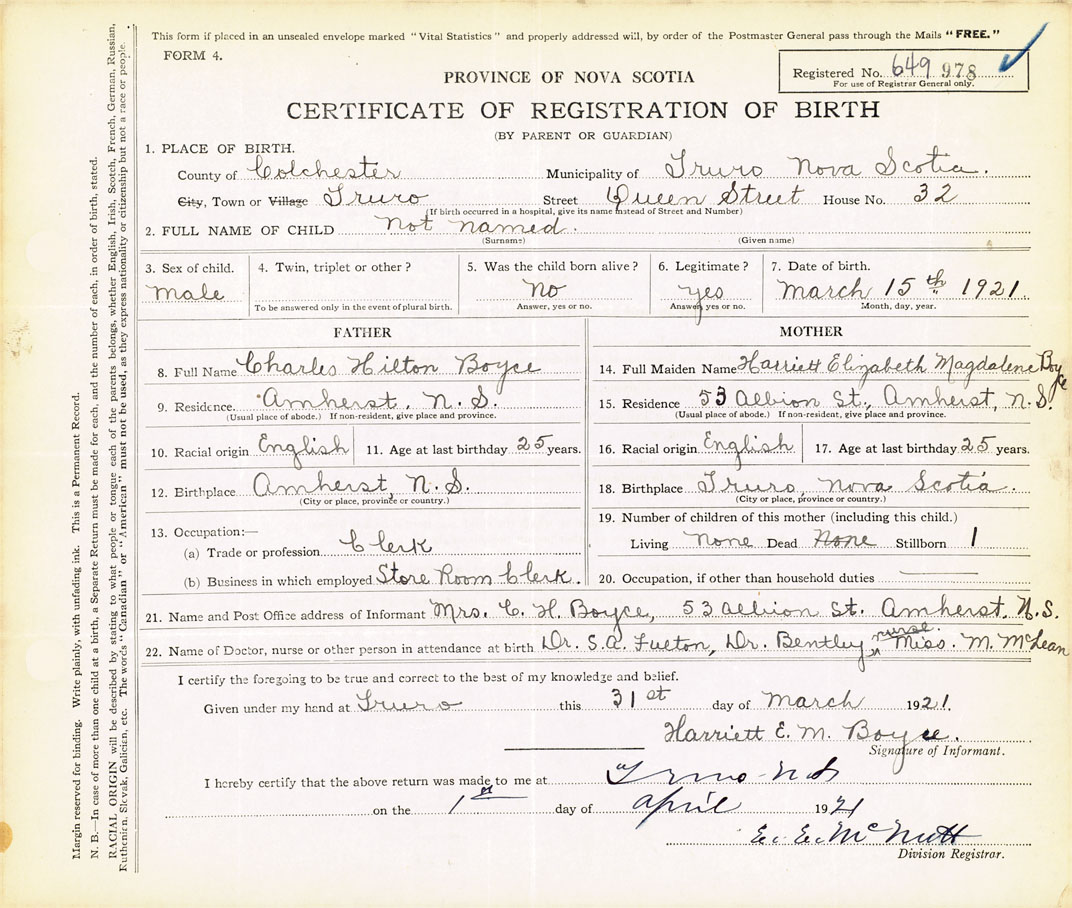 This form if placed in an unsealed envelope marked "Vital Statistics" and properly addressed will, by order of the Postmaster General pass through the Mails "FREE."
FORM 4.
Registered No. 649 978
For use of Registrar General only.
PROVINCE OF NOVA SCOTIA
CERTIFICATE OF REGISTRATION OF BIRTH
(BY PARENT OR GUARDIAN)
1. PLACE OF BIRTH.
County of Colchester Municipality of Truro Nova Scotia.
City, Town or Village Truro Street Queen Street House No. 32
(If birth occurred in a hospital, give its name instead of Street and Number)
2. FULL NAME OF CHILD Not named.
(Surname) (Given name)
3. Sex of child. male
4. Twin, triplet or other?
To be answered only in the event of plural birth.
5. Was the child born alive? No
Answer, yes or no.
6. Legitimate? yes
Answer, yes or no.
7. Date of birth. March 15th 1921.
Month, day, year.
FATHER
8. Full Name Charles Hilton Boyce
9. Residence. Amherst, N.S.
(Usual place of abode.) If non-resident, give place and province.
10. Racial origin English 11. Age at last birthday 25 years.
12. Birthplace Amherst, N.S.
(City or place, province or country.)
13. Occupation:—
(a) Trade or profession Clerk
(b) Business in which employed Store Room Clerk.
MOTHER
14. Full Maiden Name Harriett Elizabeth Magdalene Boyce
15. Residence 53 Albion St., Amherst, N.S.
(Usual place of abode.) If non-resident, give place and province.
16. Racial origin English 17. Age at last birthday 25 years.
18. Birthplace Truro, Nova Scotia.
(City or place, province or country.)
19. Number of children of this mother (including this child.)
Living None Dead None Stillborn 1
20. Occupation, if other than household duties
21. Name and Post Office address of Informant Mrs. C. H. Boyce, 53 Albion St. Amherst, N.S.
22. Name of Doctor, nurse or other person in attendance at birth Dr. S.A. Fulton, Dr. Bentley, nurse. Miss. M. McLean
I certify the foregoing to be true and correct to the best of my knowledge and belief.
Given under my hand at Truro this 31st day of March 1921.
Harriett E. M. Boyce.
Signature of Informant.
I hereby certify that the above return was made to me at Truro N S
on the 1st day of April 1921
E. E. McNutt
Division Registrar.
Margin reserved for binding. Write plainly, with unfading ink. This is a Permanent Record.
N. B.—In case of more than one child at a birth, a Separate Return must be made for each, and the number of each, in order of birth, stated.
RACIAL ORIGIN will be described by stating to what people or tongue each of the parents belongs, whether English, Irish, Scotch, French, German, Russian,
Ruthenian, Slovak, Galician, etc. The words "Canadian" or "American" must not be used, as they express nationality or citizenship but not a race or people.